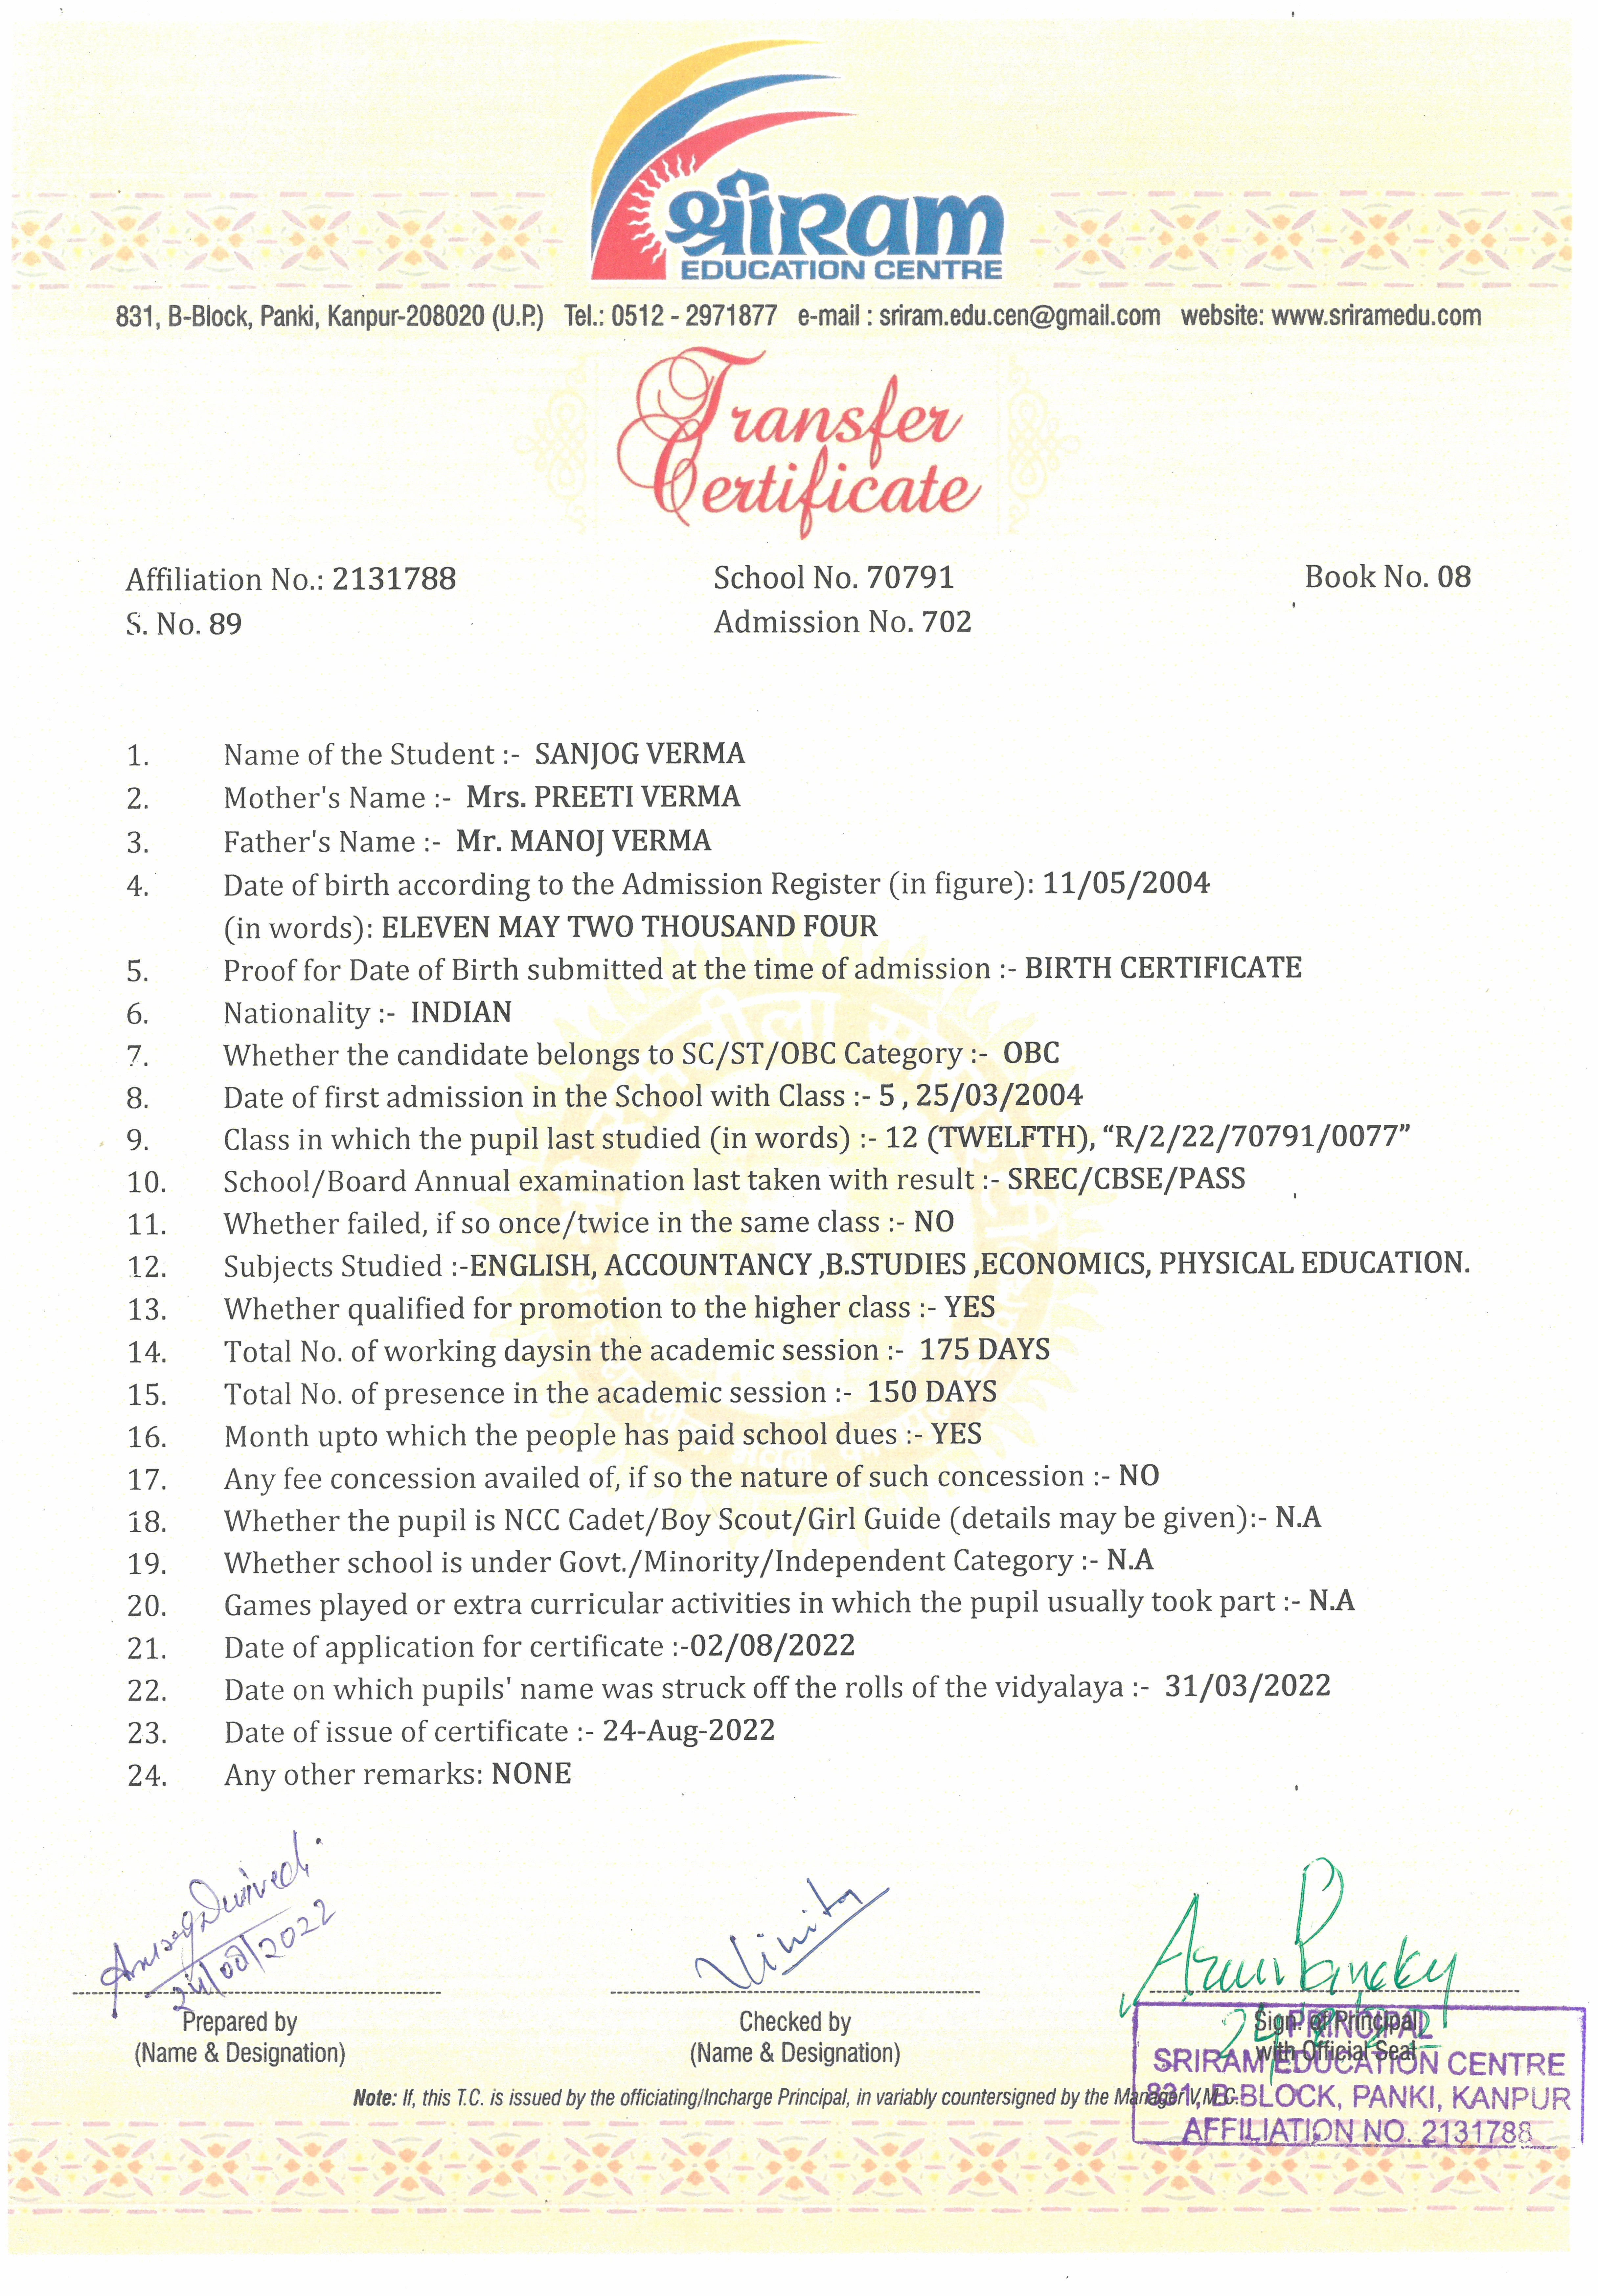 श्रीRAM
EDUCATION CENTRE
831, B-Block, Panki, Kanpur-208020 (U.P.) Tel.: 0512 - 2971877 e-mail : sriram.edu.cen@gmail.com website: www.sriramedu.com
Transfer
Certificate
Affiliation No.: 2131788 School No. 70791 Book No. 08
S. No. 89 Admission No. 702
1. Name of the Student :- SANJOG VERMA
2. Mother's Name :- Mrs. PREETI VERMA
3. Father's Name :- Mr. MANOJ VERMA
4. Date of birth according to the Admission Register (in figure): 11/05/2004
(in words): ELEVEN MAY TWO THOUSAND FOUR
5. Proof for Date of Birth submitted at the time of admission :- BIRTH CERTIFICATE
6. Nationality :- INDIAN
7. Whether the candidate belongs to SC/ST/OBC Category :- OBC
8. Date of first admission in the School with Class :- 5 , 25/03/2004
9. Class in which the pupil last studied (in words) :- 12 (TWELFTH), “R/2/22/70791/0077”
10. School/Board Annual examination last taken with result :- SREC/CBSE/PASS
11. Whether failed, if so once/twice in the same class :- NO
12. Subjects Studied :-ENGLISH, ACCOUNTANCY ,B.STUDIES ,ECONOMICS, PHYSICAL EDUCATION.
13. Whether qualified for promotion to the higher class :- YES
14. Total No. of working daysin the academic session :- 175 DAYS
15. Total No. of presence in the academic session :- 150 DAYS
16. Month upto which the people has paid school dues :- YES
17. Any fee concession availed of, if so the nature of such concession :- NO
18. Whether the pupil is NCC Cadet/Boy Scout/Girl Guide (details may be given):- N.A
19. Whether school is under Govt./Minority/Independent Category :- N.A
20. Games played or extra curricular activities in which the pupil usually took part :- N.A
21. Date of application for certificate :-02/08/2022
22. Date on which pupils' name was struck off the rolls of the vidyalaya :- 31/03/2022
23. Date of issue of certificate :- 24-Aug-2022
24. Any other remarks: NONE
Dwivedi
24/08/2022
Vinita
Arun Pandey
Prepared by Checked by Sign. of Principal
(Name & Designation) (Name & Designation) with Official Seal
PRINCIPAL
SRIRAM EDUCATION CENTRE
831, B-BLOCK, PANKI, KANPUR
AFFILIATION NO. 2131788
Note: If, this T.C. is issued by the officiating/Incharge Principal, in variably countersigned by the Manager V.M.C.